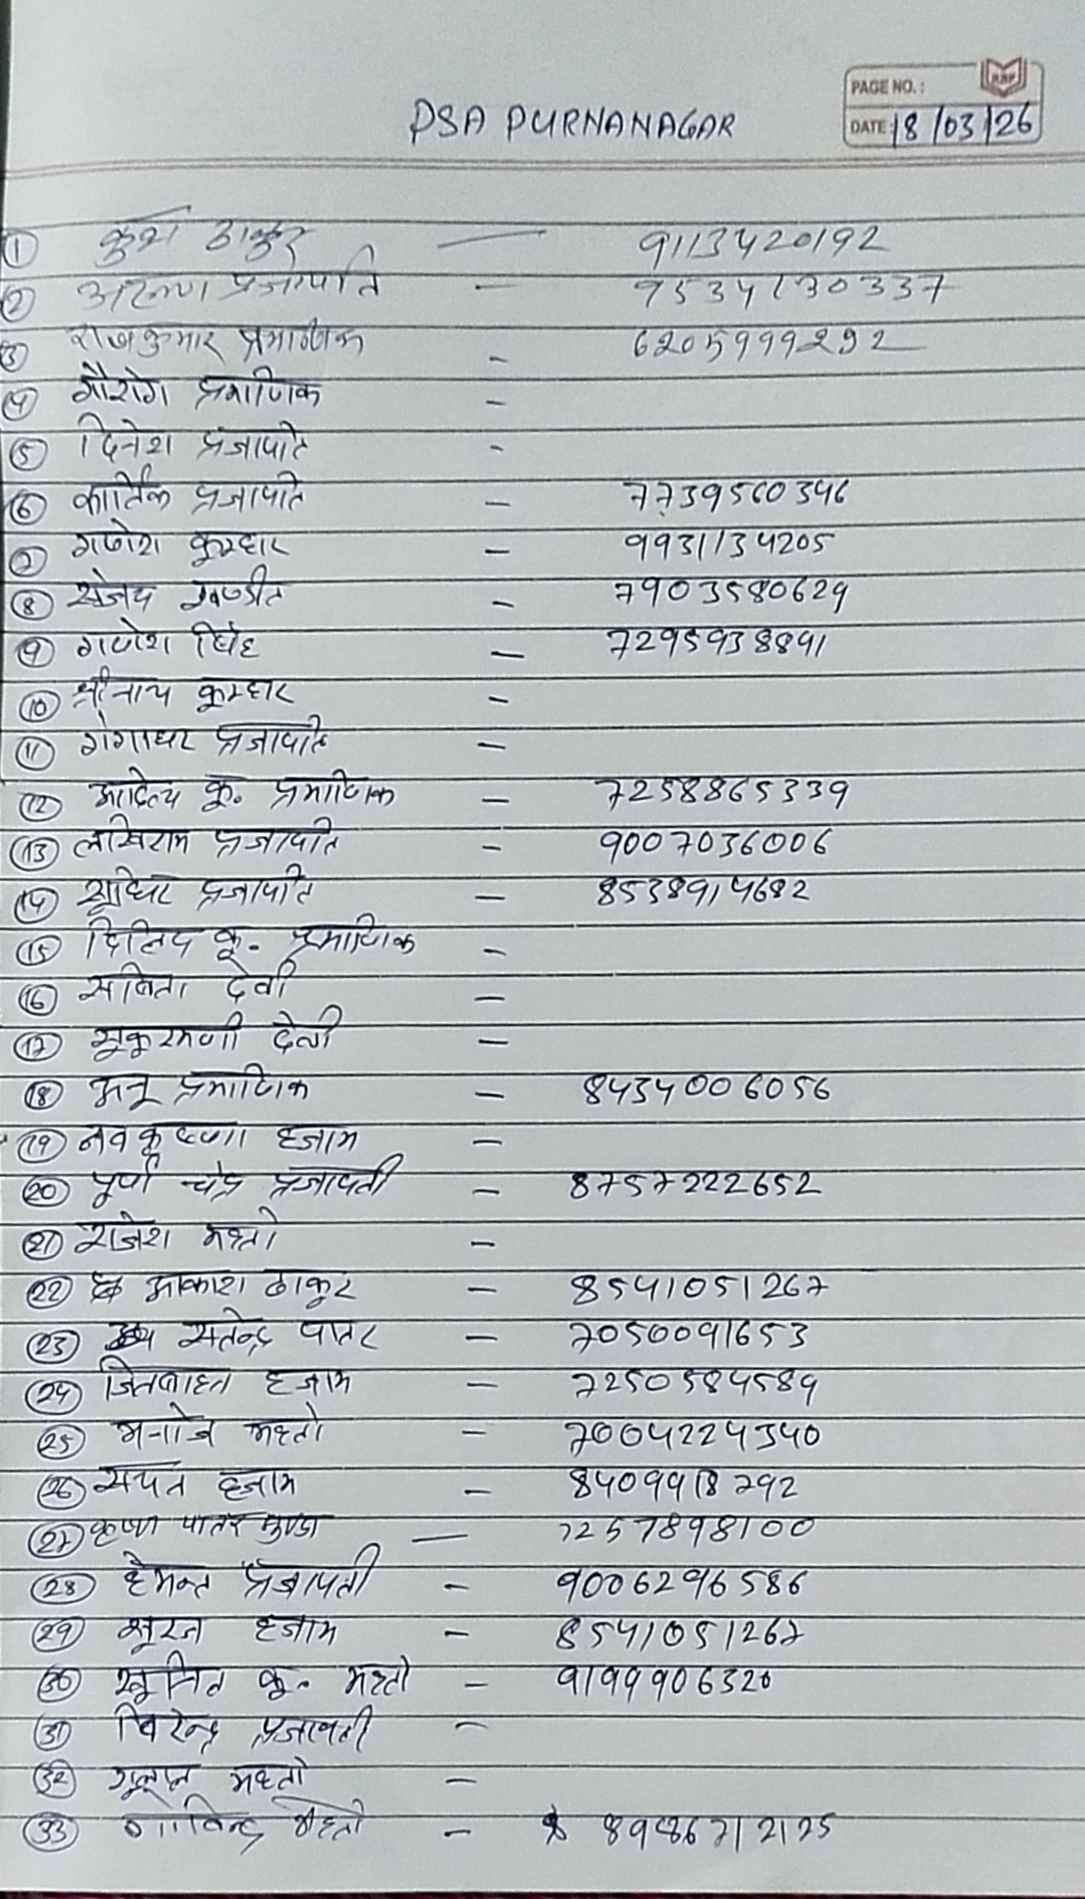 PAGE NO.:
DSA PURNANAGAR
DATE: 18/03/26
① कुश ठाकुर — 9113420192
② प्रजापति - 9534130337
③ राजकुमार प्रमाणिक - 6205999292
④ गौरांग प्रमाणिक -
⑤ दिनेश प्रजापति -
⑥ कार्तिक प्रजापति - 7739560346
⑦ गणेश कुम्हार - 9931134205
⑧ संजय पण्डीत - 7903580629
⑨ गणेश सिंह - 7295938891
⑩ श्रीनाथ कुम्हार -
⑪ गंगाधर प्रजापति -
⑫ आदित्य कु. प्रमाणिक - 7258865339
⑬ लखिराम प्रजापति - 9007036006
⑭ प्रजापति - 8538914682
⑮ दिलिप कु. प्रमाणिक -
⑯ सबिता देवी -
⑰ सुकुरमणी देवी -
⑱ प्रमाणिक - 8434006056
⑲ नव कृष्णा हजाम -
⑳ पूर्ण चंद्र प्रजापती - 8757222652
㉑ राजेश महतो -
㉒ आकाश ठाकुर - 8541051267
㉓ सतेन्द्र पातर - 7050091653
㉔ हजाम - 7250584589
㉕ मनोज महतो - 7004224340
㉖ हजाम - 8409918792
㉗ कृष्णा पातर मुण्डा — 7257898100
㉘ हेमन्त प्रजापती - 9006296586
㉙ सूरज हजाम - 8541051267
㉚ सुमित कु. महतो - 9199906320
㉛ बिरेन्द्र प्रजापती -
㉜ महतो -
㉝ गोविन्द महतो - 8986712125